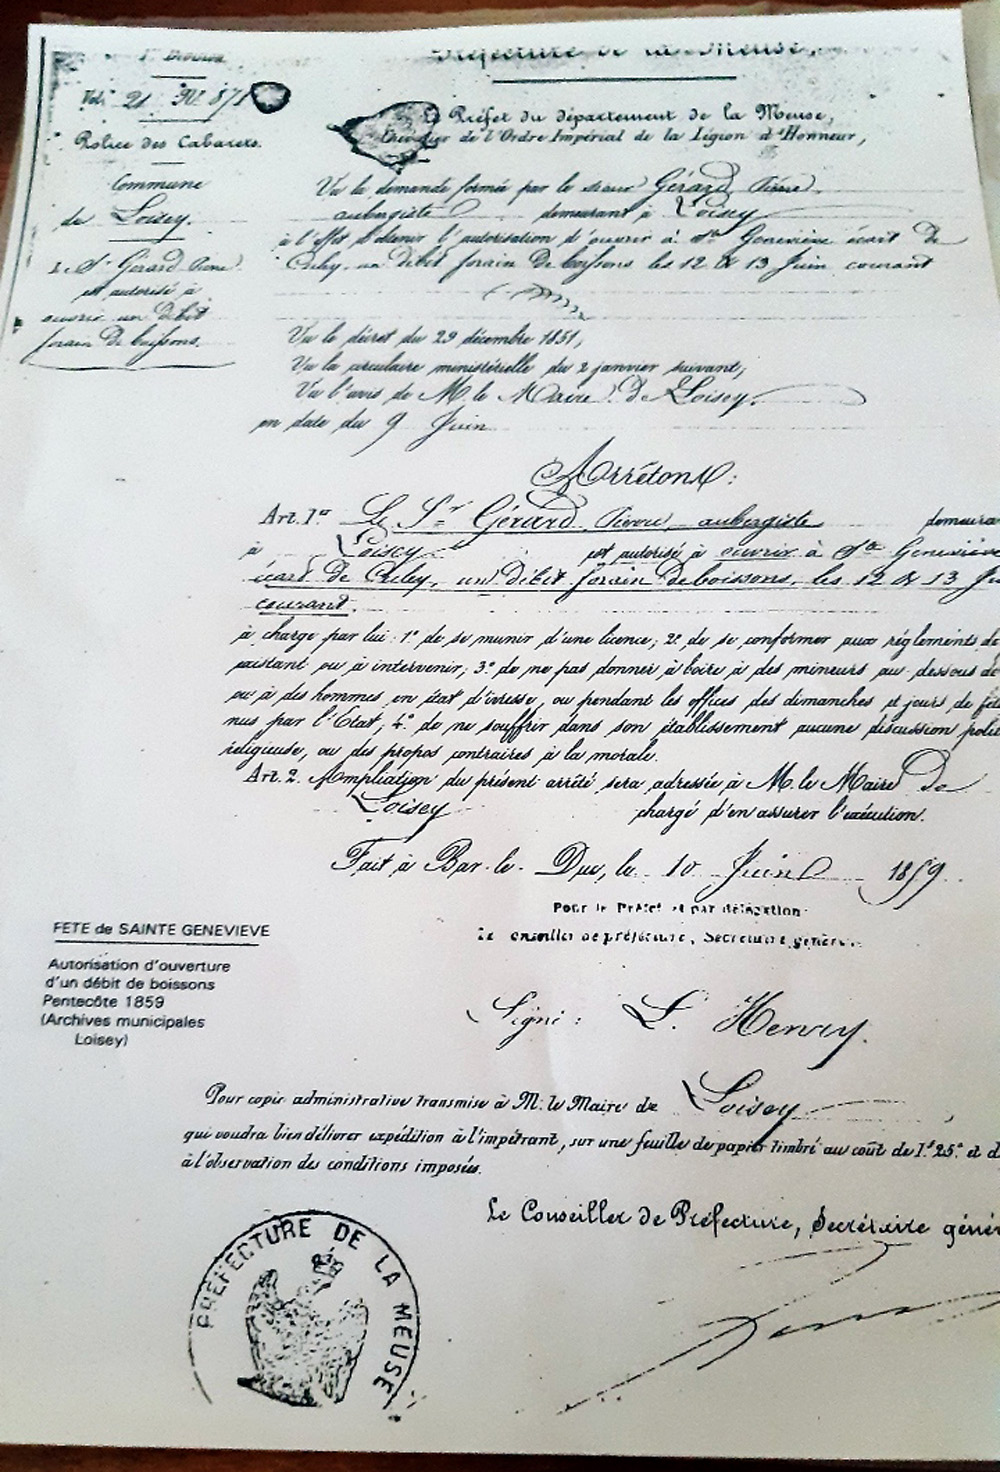 Préfecture de la Meuse,
1re Division
Vol. 21 N° 871
Police des Cabarets.
Commune
de Loisey.
Le Sr Gérard Pierre
est autorisé à
ouvrir un débit
forain de boissons.
Le Préfet du département de la Meuse,
Chevalier de l'Ordre Impérial de la Légion d'Honneur,
Vu la demande formée par le sieur Gérard Pierre
aubergiste demeurant à Loisey
à l'effet d'obtenir l'autorisation d'ouvrir à Ste Geneviève écart de
Culey, un débit forain de boissons les 12 & 13 Juin courant
Vu le décret du 29 décembre 1851,
Vu la circulaire ministérielle du 2 janvier suivant,
Vu l'avis de M. le Maire de Loisey.
en date du 9 Juin
Arrêtons:
Art. 1er Le Sr Gérard Pierre, aubergiste demeura
à Loisey est autorisé à ouvrir à Ste Geneviève
écart de Culey, un débit forain de boissons, les 12 & 13 Ju
courant.
à charge par lui: 1° de se munir d'une licence; 2° de se conformer aux règlements de
existant ou à intervenir; 3° de ne pas donner à boire à des mineurs au-dessous de
ou à des hommes en état d'ivresse, ou pendant les offices des dimanches et jours de fête
nus par l'Etat; 4° de ne souffrir dans son établissement aucune discussion polit
religieuse, ou des propos contraires à la morale.
Art. 2. Ampliation du présent arrêté sera adressée à M. le Maire de
Loisey chargé d'en assurer l'exécution.
Fait à Bar-le-Duc, le 10 Juin 1859.
Pour le Préfet et par délégation
Le Conseiller de préfecture, Secrétaire général.
FETE de SAINTE GENEVIEVE
Autorisation d'ouverture
d'un débit de boissons
Pentecôte 1859
(Archives municipales
Loisey)
Signé: L. Henry.
Pour copie administrative transmise à M. le Maire de Loisey
qui voudra bien délivrer expédition à l'impétrant, sur une feuille de papier timbré au coût de 1f. 25c. et d
à l'observation des conditions imposées.
Le Conseiller de Préfecture, Secrétaire génér
PRÉFECTURE DE LA MEUSE